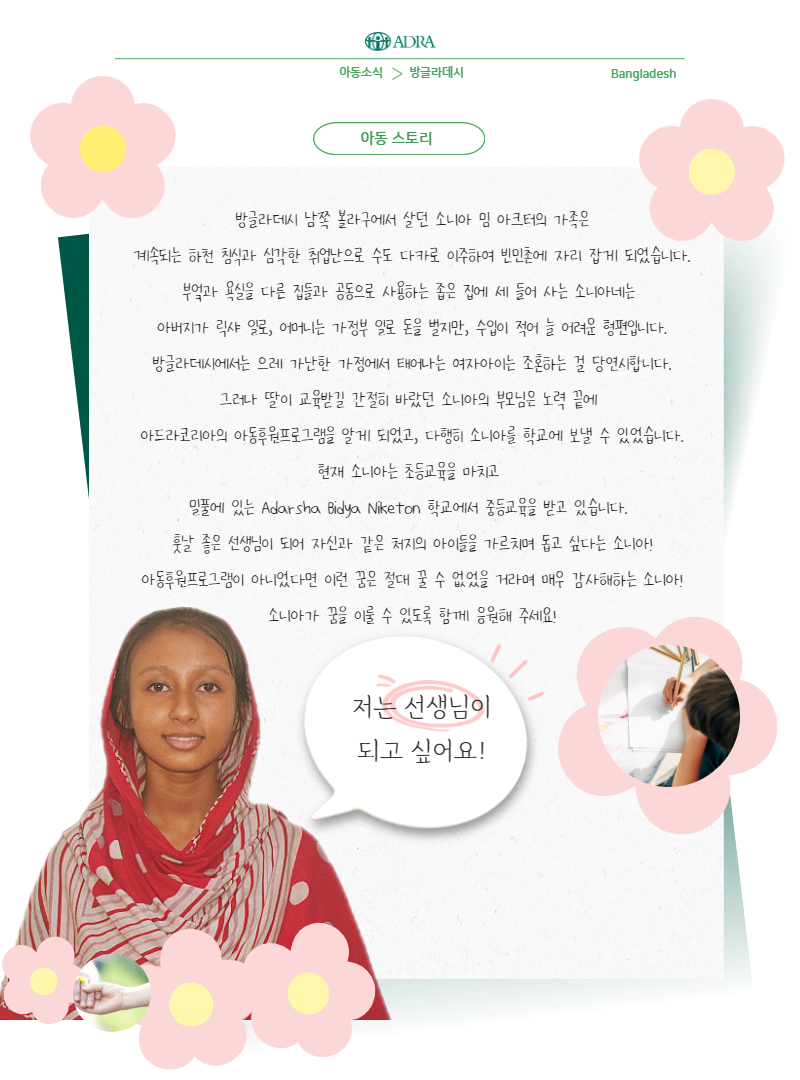 ADRA
아동소식 > 방글라데시
Bangladesh
아동 스토리
방글라데시 남쪽 볼라구에서 살던 소니아 밈 아크터의 가족은
계속되는 하천 침식과 심각한 취업난으로 수도 다카로 이주하여 빈민촌에 자리 잡게 되었습니다.
부엌과 욕실을 다른 집들과 공동으로 사용하는 좁은 집에 세 들어 사는 소니아네는
아버지가 릭샤 일로, 어머니는 가정부 일로 돈을 벌지만, 수입이 적어 늘 어려운 형편입니다.
방글라데시에서는 으레 가난한 가정에서 태어나는 여자아이는 조혼하는 걸 당연시합니다.
그러나 딸이 교육받길 간절히 바랐던 소니아의 부모님은 노력 끝에
아드라코리아의 아동후원프로그램을 알게 되었고, 다행히 소니아를 학교에 보낼 수 있었습니다.
현재 소니아는 초등교육을 마치고
밀풀에 있는 Adarsha Bidya Niketon 학교에서 중등교육을 받고 있습니다.
훗날 좋은 선생님이 되어 자신과 같은 처지의 아이들을 가르치며 돕고 싶다는 소니아!
아동후원프로그램이 아니었다면 이런 꿈은 절대 꿀 수 없었을 거라며 매우 감사해하는 소니아!
소니아가 꿈을 이룰 수 있도록 함께 응원해 주세요!
저는 선생님이
되고 싶어요!